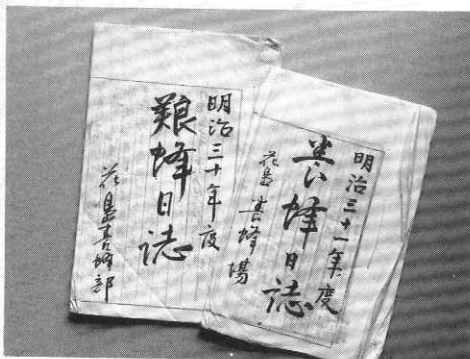 明治三十年度
艱蜂日誌
花島養蜂部
明治三十一年度
養蜂日誌
花島養蜂場